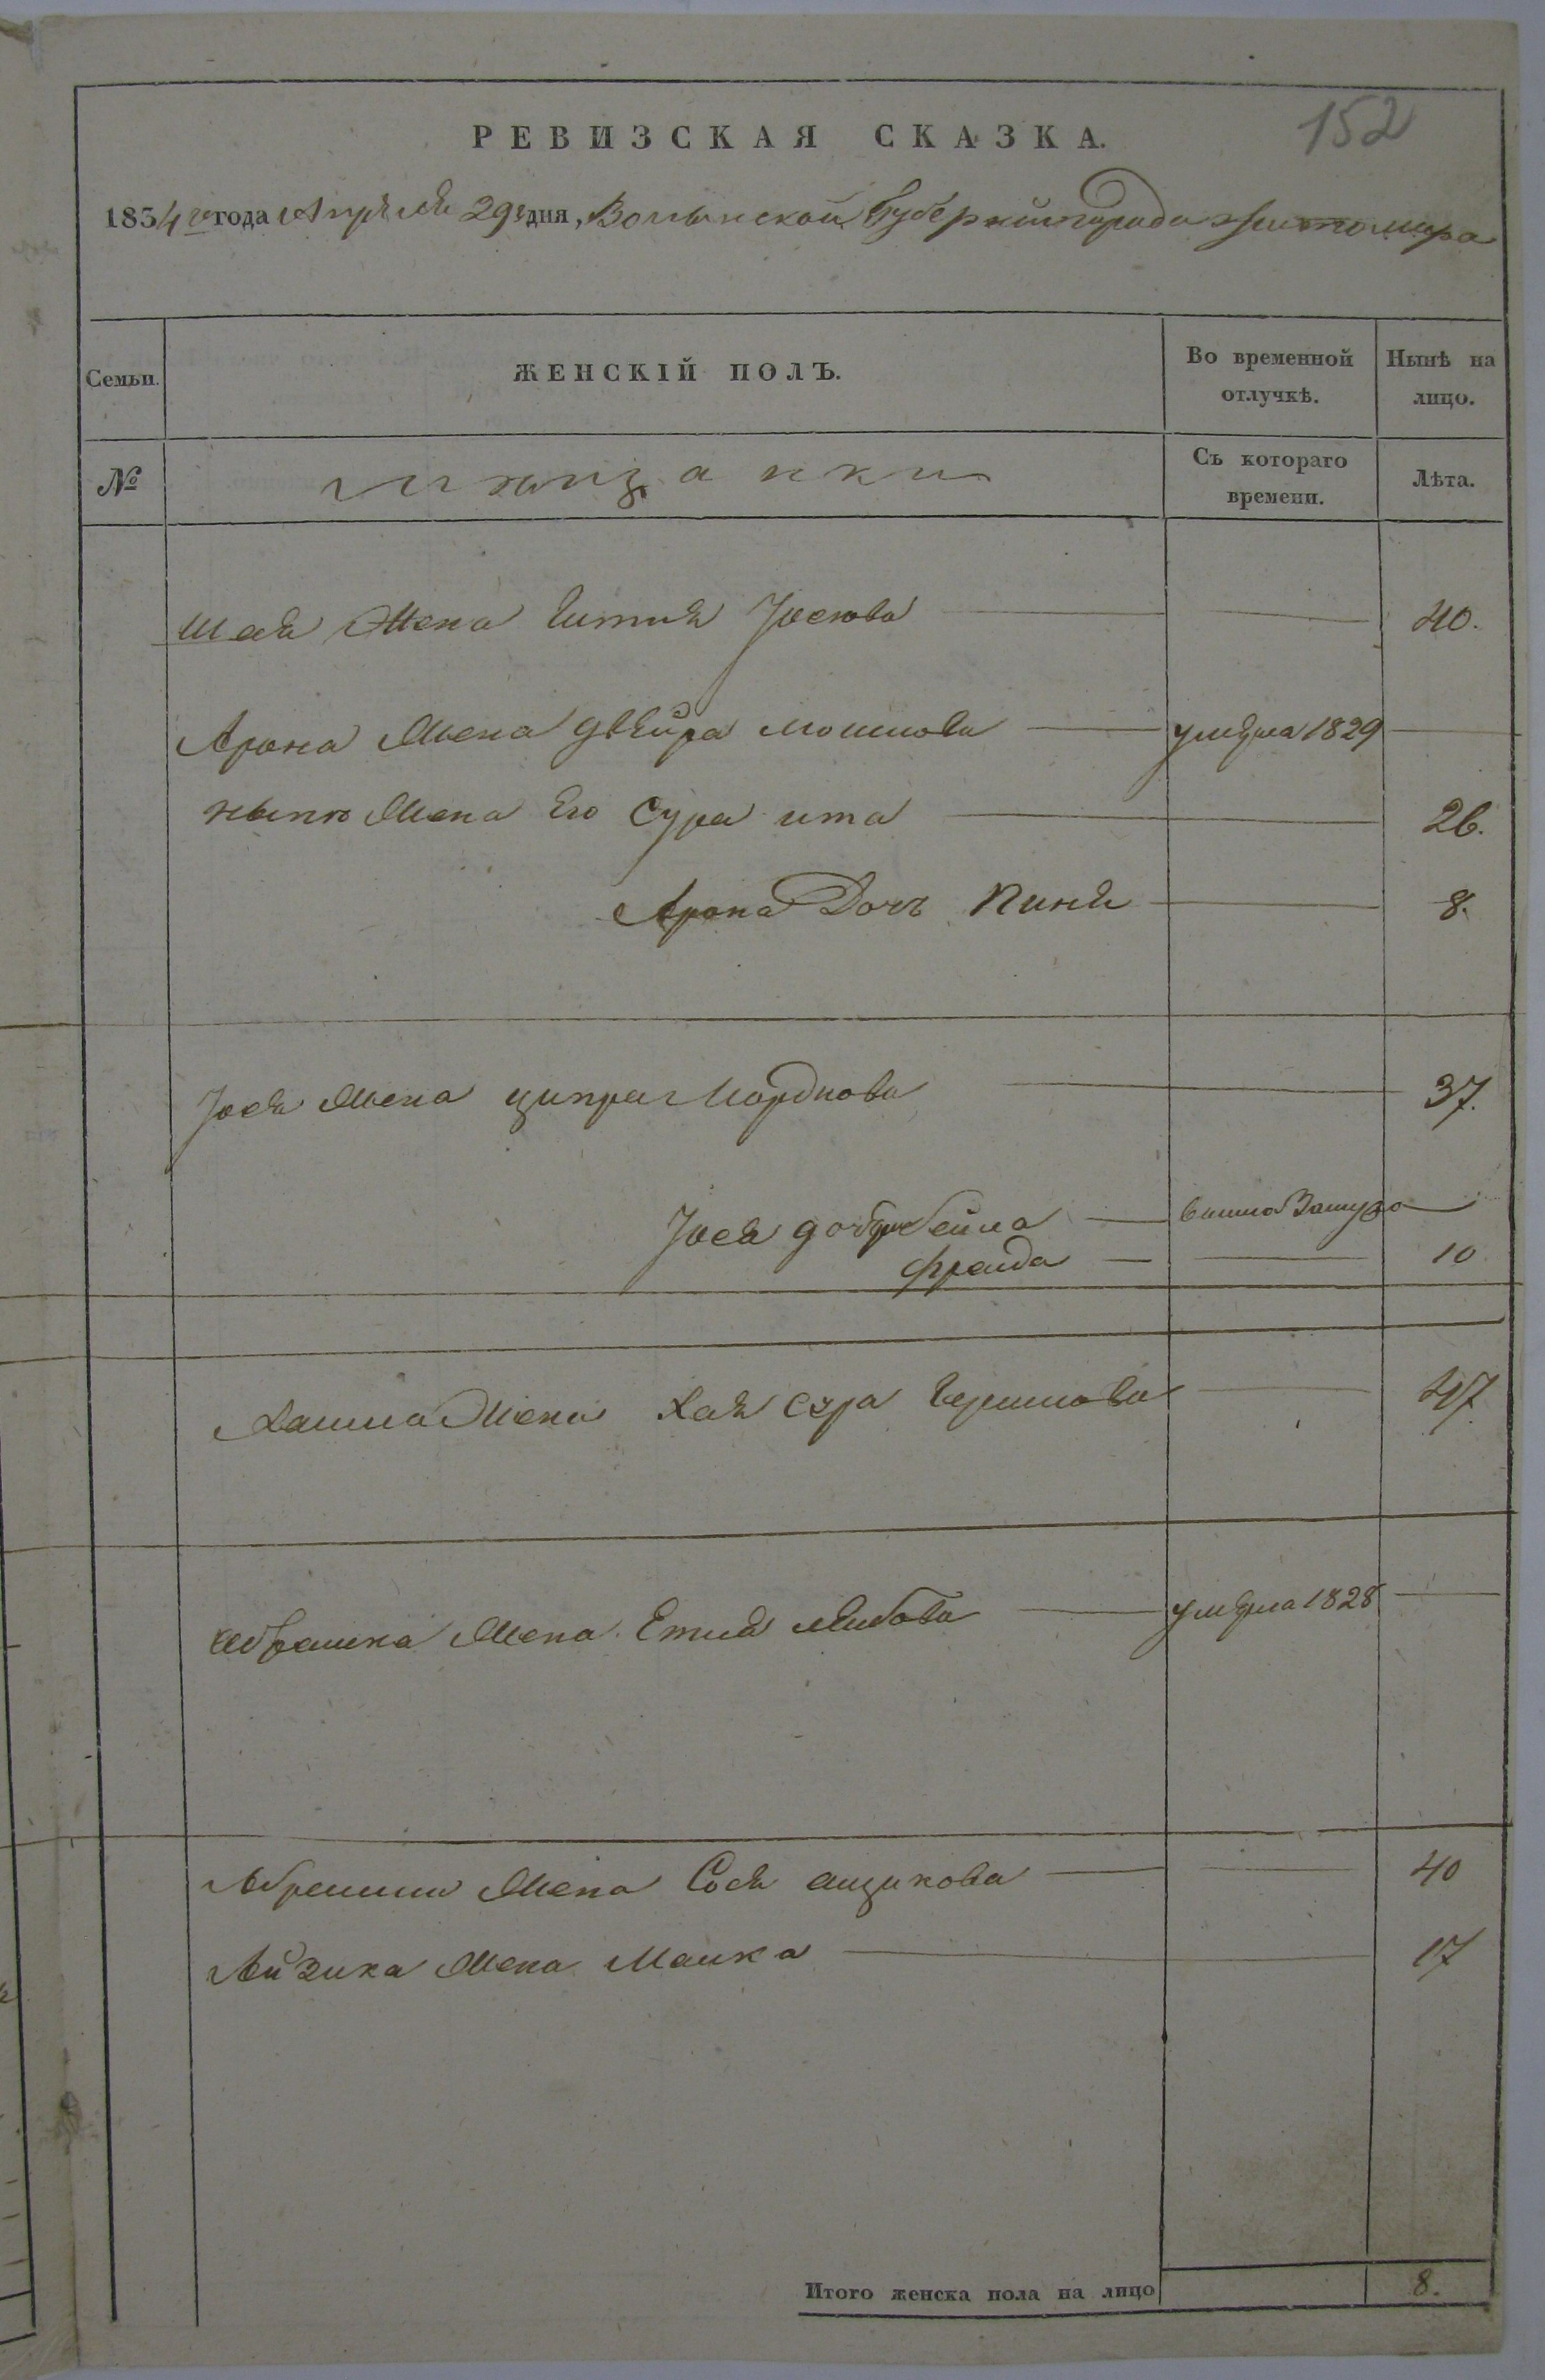 152
РЕВИЗСКАЯ СКАЗКА.
1834 го года Апреля 29 дня, Волынской Губернии города Житомира
Семьи. ЖЕНСКІЙ ПОЛЪ. Во временной отлучкѣ. Нынѣ на лицо.
№ мещанки Съ котораго времени. Лѣта.
Шая Жена Гитля Іосюва 40.
Арона Жена Двейра Мошкова умерла 1829
ныню Жена Его Сура ита 26.
Арона Дочь Киня 8.
Іося Жена ципра Мордкова 37.
Іося Бейла вишла Замужо
Фраида 10
Хаима Жена Хая сура Гершкова 47
Абрамка Жена Етля Лейбова умерла 1828
Абрамки Жена Сося аицикова 40
Айзика Жена Малка 17
Итого женска пола на лицо 8.